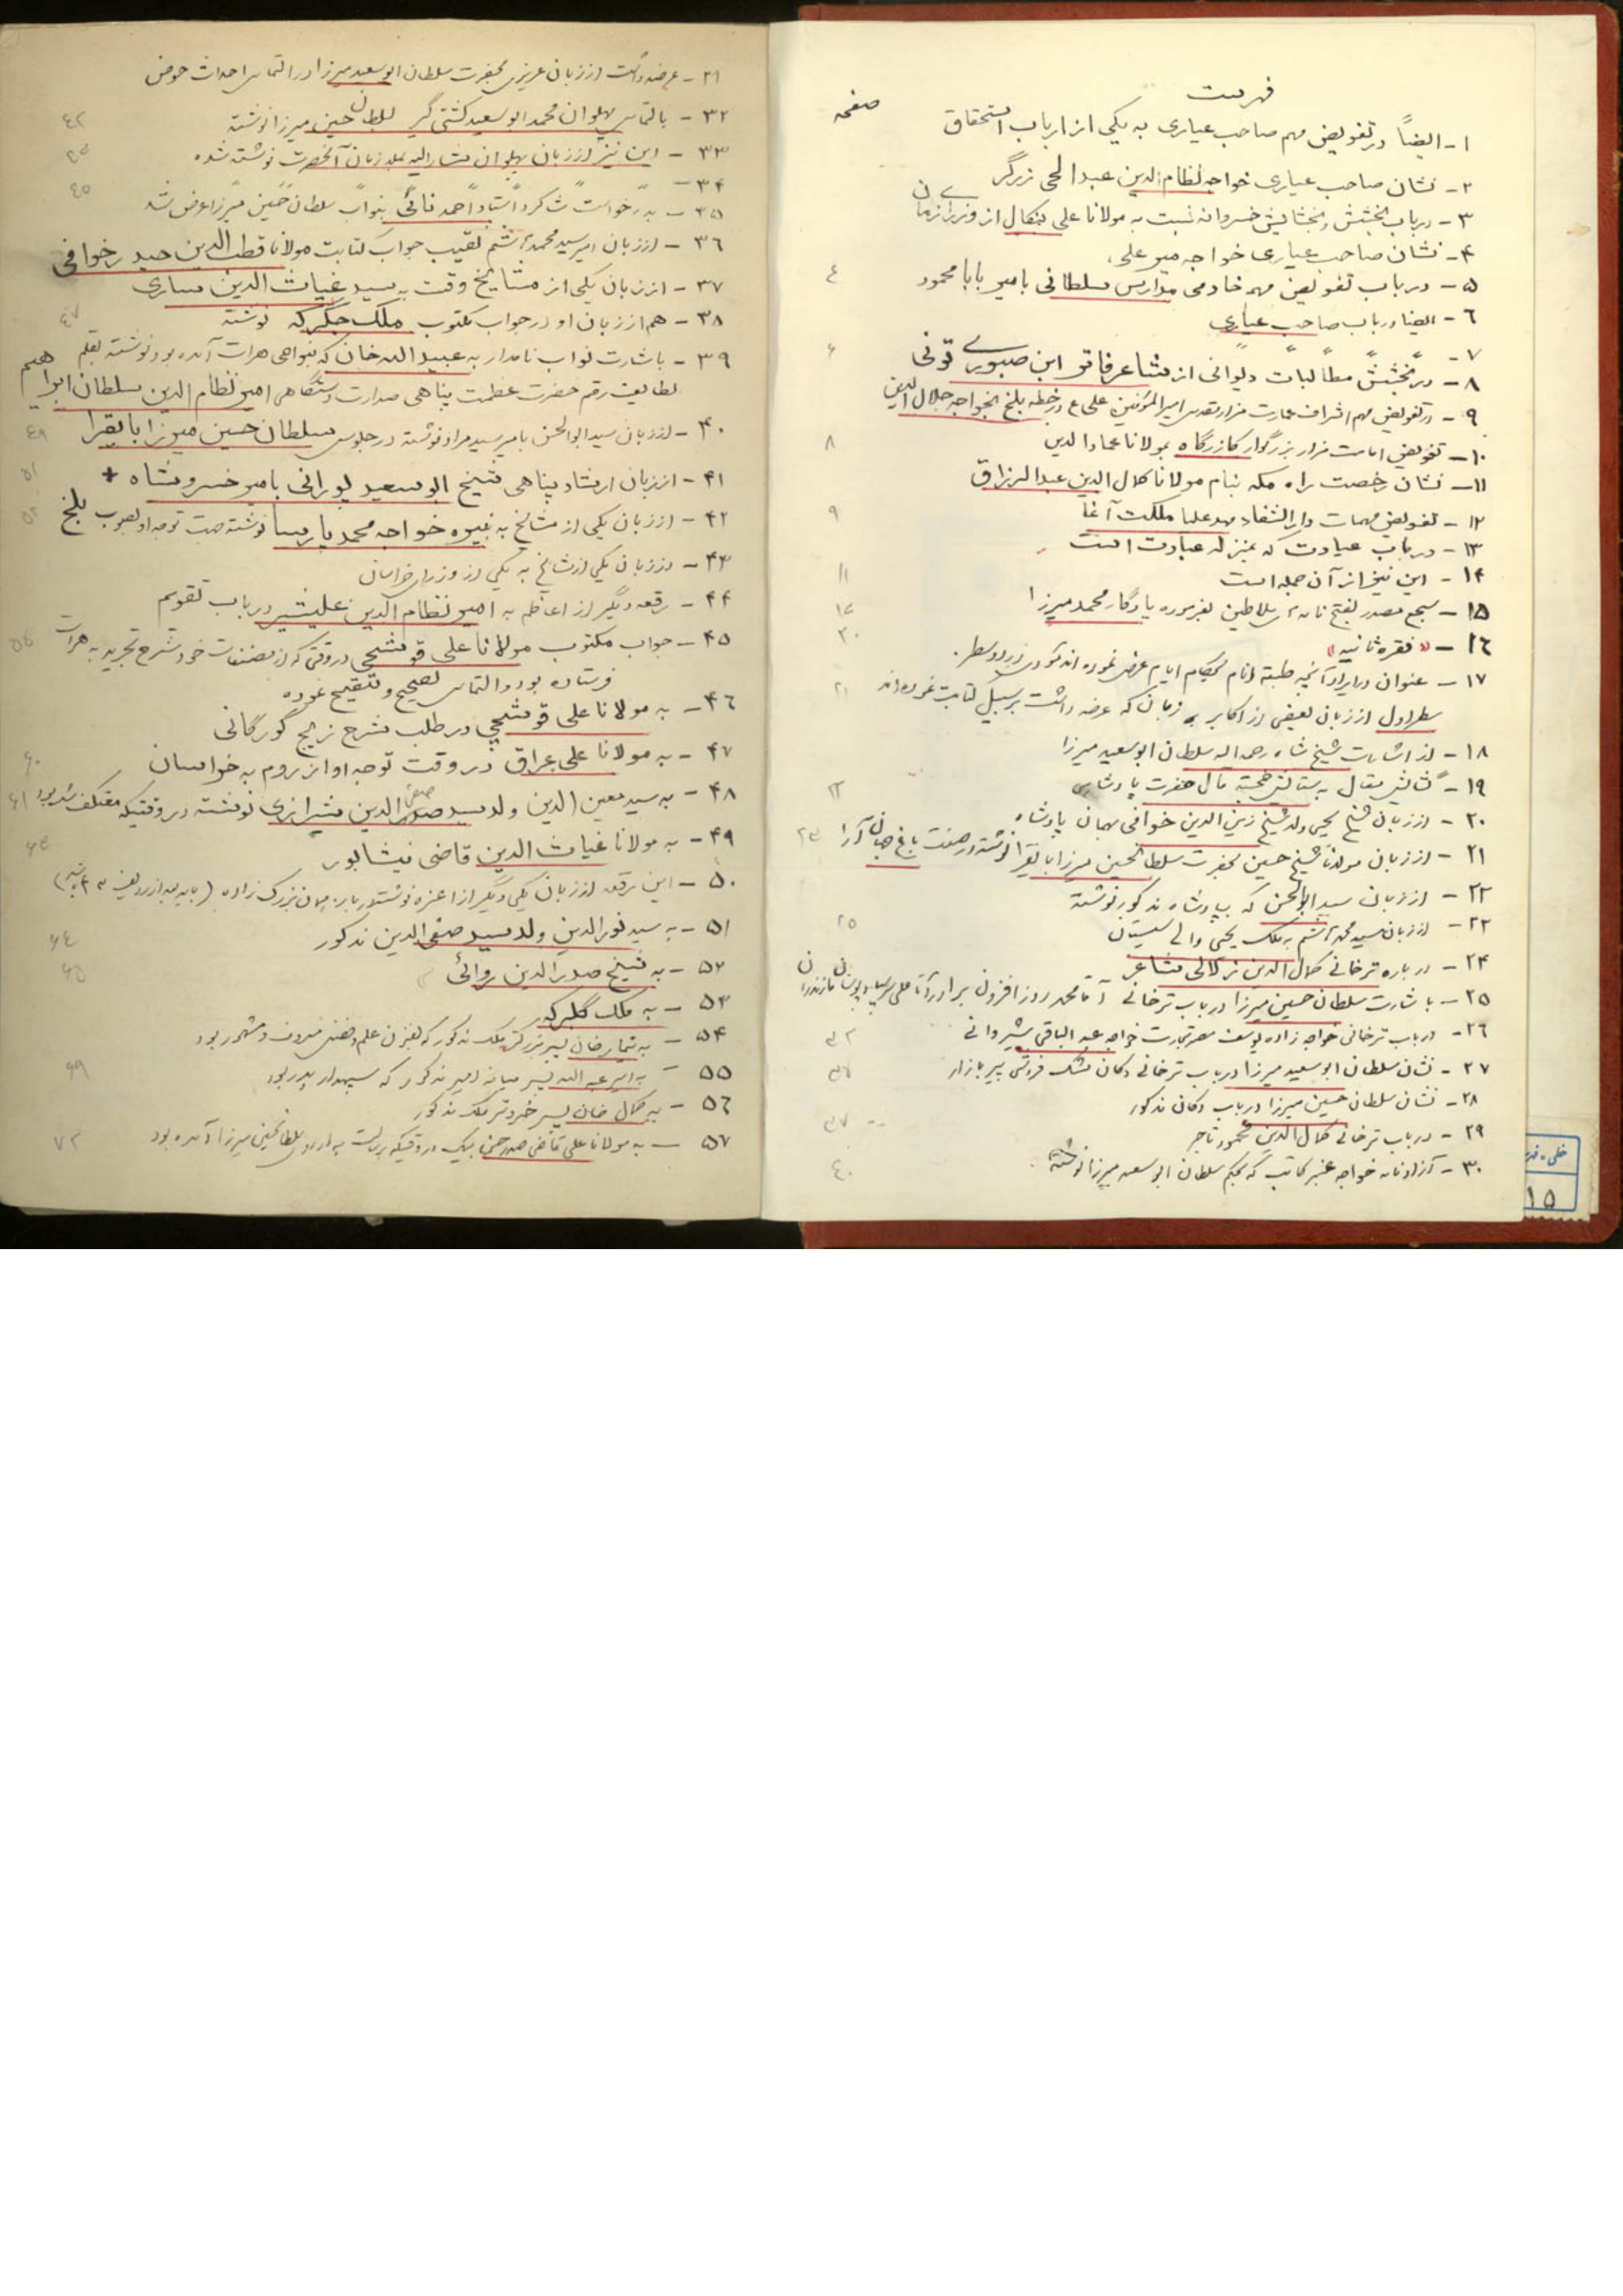 فهرست
صفحه
۱ - ایضاً در تفویض مهم صاحب عیاری به یکی از ارباب استحقاق
۲ - نشان صاحب عیاری خواجه نظام الدین عبدالحی زرگر
۳ - در باب بخشش و بخشایش خسروانه نسبت به مولانا علی
۴ - نشان صاحب عیاری خواجه میر علی
۵ - در باب تفویض مهم خادمی مدارس سلطانی بامیر بابا محمود ٤
٦ - ایضا در باب صاحب عیاری
۷ -
۸ - در بخشش مطالبات دیوانی از مشاعر فانو ابن صبوری تونی ۶
۹ - در تفویض مهم اشراف عمارت مزار مقدس امیرالمؤمنین علی ع در خطه بلخ بخواجه جلال الدین
۱۰ - تفویض امامت مزار بزرگوار کازرگاه بمولانا عماد الدین ۸
۱۱ - نشان رخصت راه مکه بنام مولانا کمال الدین عبدالرزاق
۱۲ - تفویض مهمات دارالشفاء مهد علیا ملکت آغا ۹
۱۳ - در باب عیادت که بمنزله عبادت است
۱۴ - این نیز از آن جمله است ۱۱
۱۵ - سجع مصدر بفتح نامه سلاطین بفرموده یادگار محمد میرزا
۱٦ - « فقره ثانیه » ۲۰
۱۷ - عنوان در ایراد آنچه طبقه انام بحکام ایام عرض نموده اند
سطر اول از زبان بعضی از اکابر زمان که عرضه داشت بر سبیل کتابت نموده اند ۲۱
۱۸ - از اشارت شیخ شاه رحمه اله سلطان ابوسعید میرزا
۱۹ -
۲۰ - از زبان شیخ یحیی ولد شیخ زین الدین خوافی بهمان پادشاه
۲۱ - از زبان مولانا شیخ حسین بحضرت سلطان حسین میرزا بایقرا نوشته در صفت باغ جهان آرا
۲۲ - از زبان سید ابوالحسن که بپادشاه مذکور نوشته
۲۳ - از زبان سید محمد هاشم به ملک یحیی والی سیستان ۲۵
۲۴ - در باره ترخانی کمال الدین زلالی شاعر
۲۵ - باشارت سلطان حسین میرزا در باب ترخانی آقا محمد روز افزون برادر آقا علی
۲٦ - در باب ترخانی خواجه زاده یوسف مصر تجارت خواجه عبد الباقی شیروانی
۲۷ - نشان سلطان ابوسعید میرزا در باب ترخانی دکان مشک فروشی سر بازار
۲۸ - نشان سلطان حسین میرزا در باب دکان مذکور
۲۹ - در باب ترخانی کمال الدین محمود تاجر
۳۰ - آزادنامه خواجه عنبر کاتب که بحکم سلطان ابوسعید میرزا نوشته ٤۰
۳۱ - عرضه داشت از زبان عزیزی بحضرت سلطان ابوسعید میرزا در التماس احداث حوض
۳۲ - بالتماس پهلوان محمد ابوسعید کشتی گیر بسلطان حسین میرزا نوشته
۳۳ - این نیز از زبان پهلوان مشارالیه بملازمان آنحضرت نوشته شده
۳۴ -
۳۵ - بدرخواست شاگرد استاد احمد نائی بنواب سلطان حسین میرزا عرض شد ٤۵
۳٦ - از زبان امیر سید محمد هاشم نقیب جواب کتابت مولانا قطب الدین حیدر خوافی
۳۷ - از زبان یکی از مشایخ وقت به سید غیاث الدین ساری
۳۸ - هم از زبان او در جواب مکتوب ملک جگرکه نوشته
۳۹ - باشارت نواب نامدار به عبید اله خان که بنواحی هرات آمده بود نوشته بقلم
لطایف رقم حضرت عظمت پناهی صدارت دستگاهی امیر نظام الدین سلطان ابراهیم
۴۰ - از زبان سید ابوالحسن بامیر سید مراد نوشته در جلوس سلطان حسین میرزا بایقرا
۴۱ - از زبان ارشاد پناهی شیخ ابوسعید پورانی بامیر خسرو شاه + ۵۱
۴۲ - از زبان یکی از مشایخ به نبیره خواجه محمد پارسا نوشته جهت توجه او بصوب بلخ
۴۳ - از زبان یکی از مشایخ به یکی از وزرای خراسان
۴۴ - رقعه دیگر از اعاظم به امیر نظام الدین علیشیر در باب تقویم
۴۵ - جواب مکتوب مولانا علی قوشچی در وقتی که از مصنفات خود شرح تجرید به هرات
فرستاده بود و التماس تصحیح و تنقیح نموده ۵۵
۴٦ - به مولانا علی قوشچی در طلب شرح زیج گورگانی
۴۷ - به مولانا علی عراق در وقت توجه او از روم به خراسان ۶۰
۴۸ - به سید معین الدین ولد سید صفی الدین شیرازی نوشته در وقتیکه معتکف شده بود ۶۱
۴۹ - به مولانا غیاث الدین قاضی نیشابور
۵۰ - این رقعه از زبان یکی دیگر از اعزه نوشته در باره همان بزرگ زاده
۵۱ - به سید نورالدین ولد سید صفی الدین مذکور ۶٤
۵۲ - به شیخ صدر الدین روائی ۶۵
۵۳ - به ملک گلبرکه
۵۴ - به تیمار خان پسر بزرگتر ملک مذکور که بفزون علم و فضل معروف و مشهور بود
۵۵ - به امیر عبد اله پسر میانه امیر مذکور که سپهدار پدر بود ۶۹
۵٦ - به کمال خان پسر خردتر ملک مذکور
۵۷ - به مولانا علی قاضی صدر حسن بیک در وقتیکه برسالت به اردوی سلطان حسین میرزا آمده بود ۷۲
۱۵